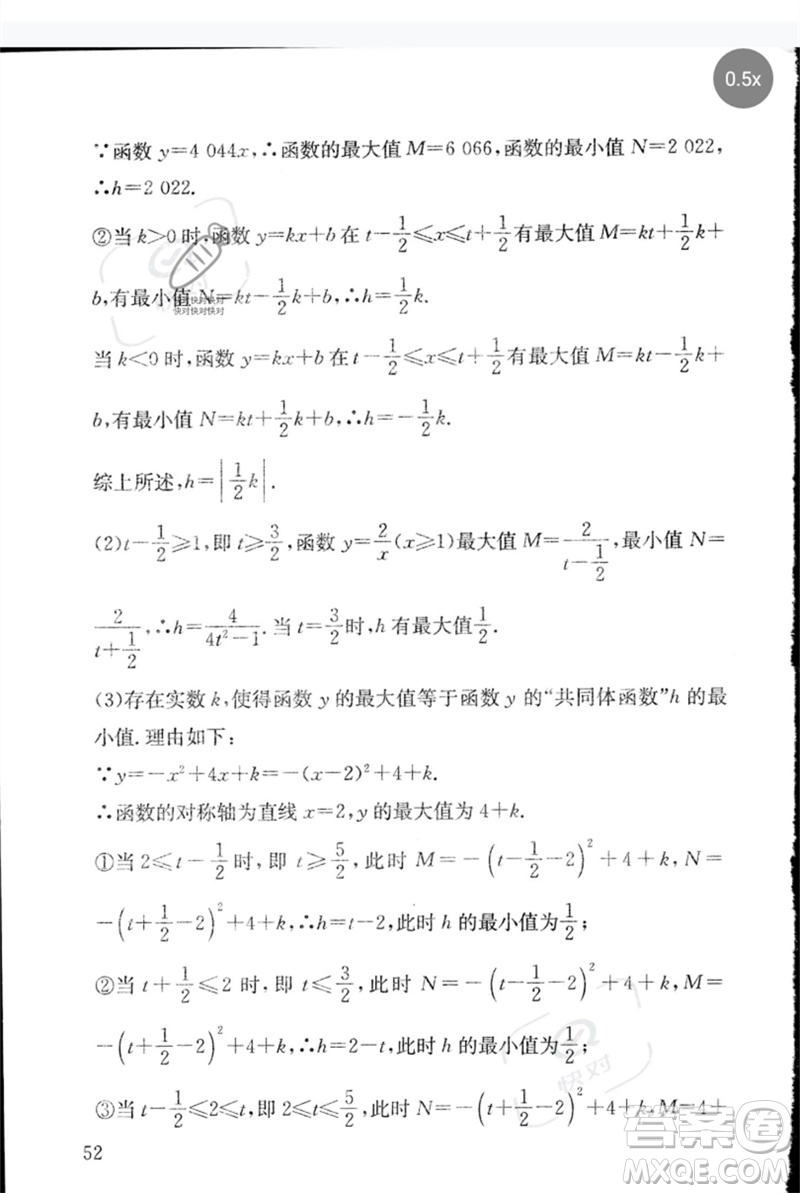 0.5x
∵函数 y=4 044x,∴函数的最大值 M=6 066,函数的最小值 N=2 022,
∴h=2 022.
②当 k>0 时,函数 y=kx+b 在 t-1/2≤x≤t+1/2有最大值 M=kt+1/2k+
b,有最小值 N=kt-1/2k+b,∴h=1/2k.
快对快对快对
快对快对快对
当 k<0 时,函数 y=kx+b 在 t-1/2≤x≤t+1/2有最大值 M=kt-1/2k+
b,有最小值 N=kt+1/2k+b,∴h=-1/2k.
综上所述,h=|1/2k|.
(2)t-1/2≥1,即 t≥3/2,函数 y=2/x(x≥1)最大值 M=2/(t-1/2),最小值 N=
2/(t+1/2),∴h=4/(4t²-1).当 t=3/2时,h 有最大值1/2.
(3)存在实数 k,使得函数 y 的最大值等于函数 y 的“共同体函数”h 的最
小值.理由如下:
∵y=-x²+4x+k=-(x-2)²+4+k.
∴函数的对称轴为直线 x=2,y 的最大值为 4+k.
①当 2≤t-1/2时,即 t≥5/2,此时 M=-(t-1/2-2)²+4+k,N=
-(t+1/2-2)²+4+k,∴h=t-2,此时 h 的最小值为1/2;
②当 t+1/2≤2 时,即 t≤3/2,此时 N=-(t-1/2-2)²+4+k,M=
-(t+1/2-2)²+4+k,∴h=2-t,此时 h 的最小值为1/2;
快对
③当 t-1/2≤2≤t,即 2≤t≤5/2,此时 N=-(t-1/2-2)²+4+k,M=4+
52
答案卷
MXQE.COM